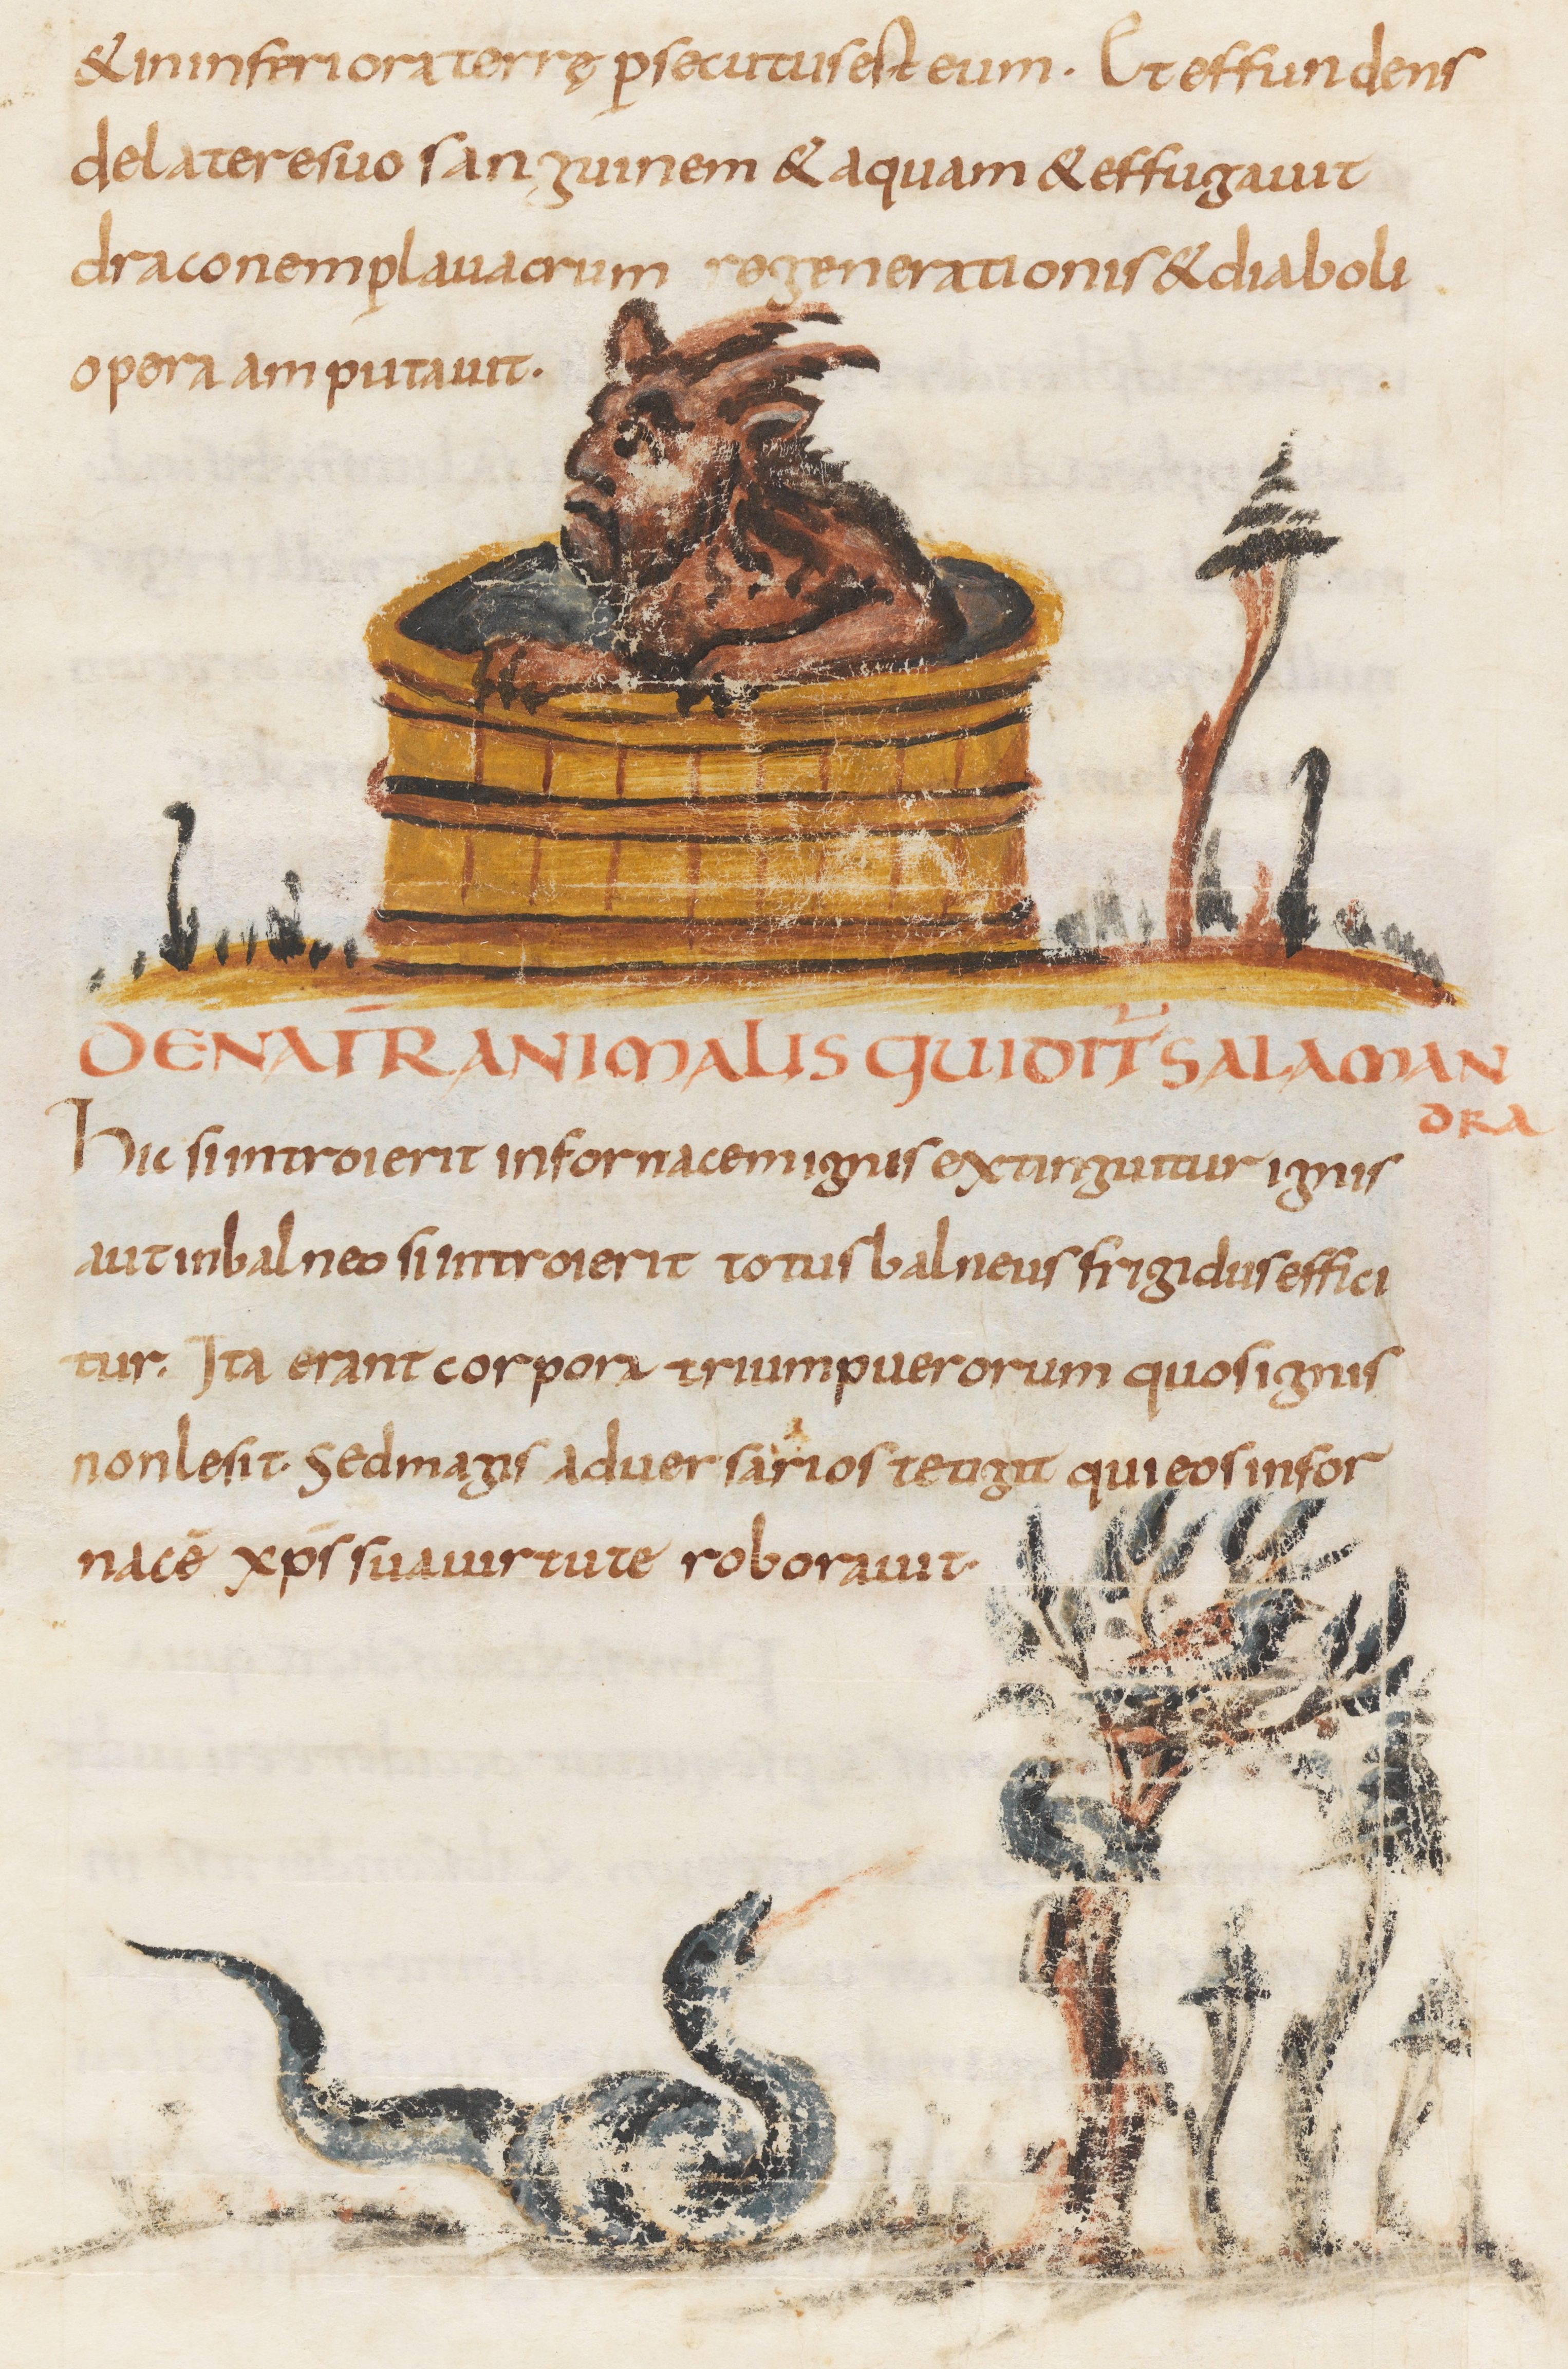 & in inferiora terrę p̱secutus est eum. Et effundens
de latere suo sanguinem & aquam & effugauit
draconem p̱ lauacrum regenerationis & diaboli
opera amputauit.
DE NAT̄R ANIMALIS QUI DIT̄ SALAMAN
DRA
Hic si introierit in fornacem ignis extinguitur ignis
aut in balneo si introierit totus balneus frigidus effici
tur. Ita erant corpora trium puerorum quos ignis
non lesit. Sed magis aduersarios tetigit qui eos in for
nacē xp̄s sua uirtute roborauit.